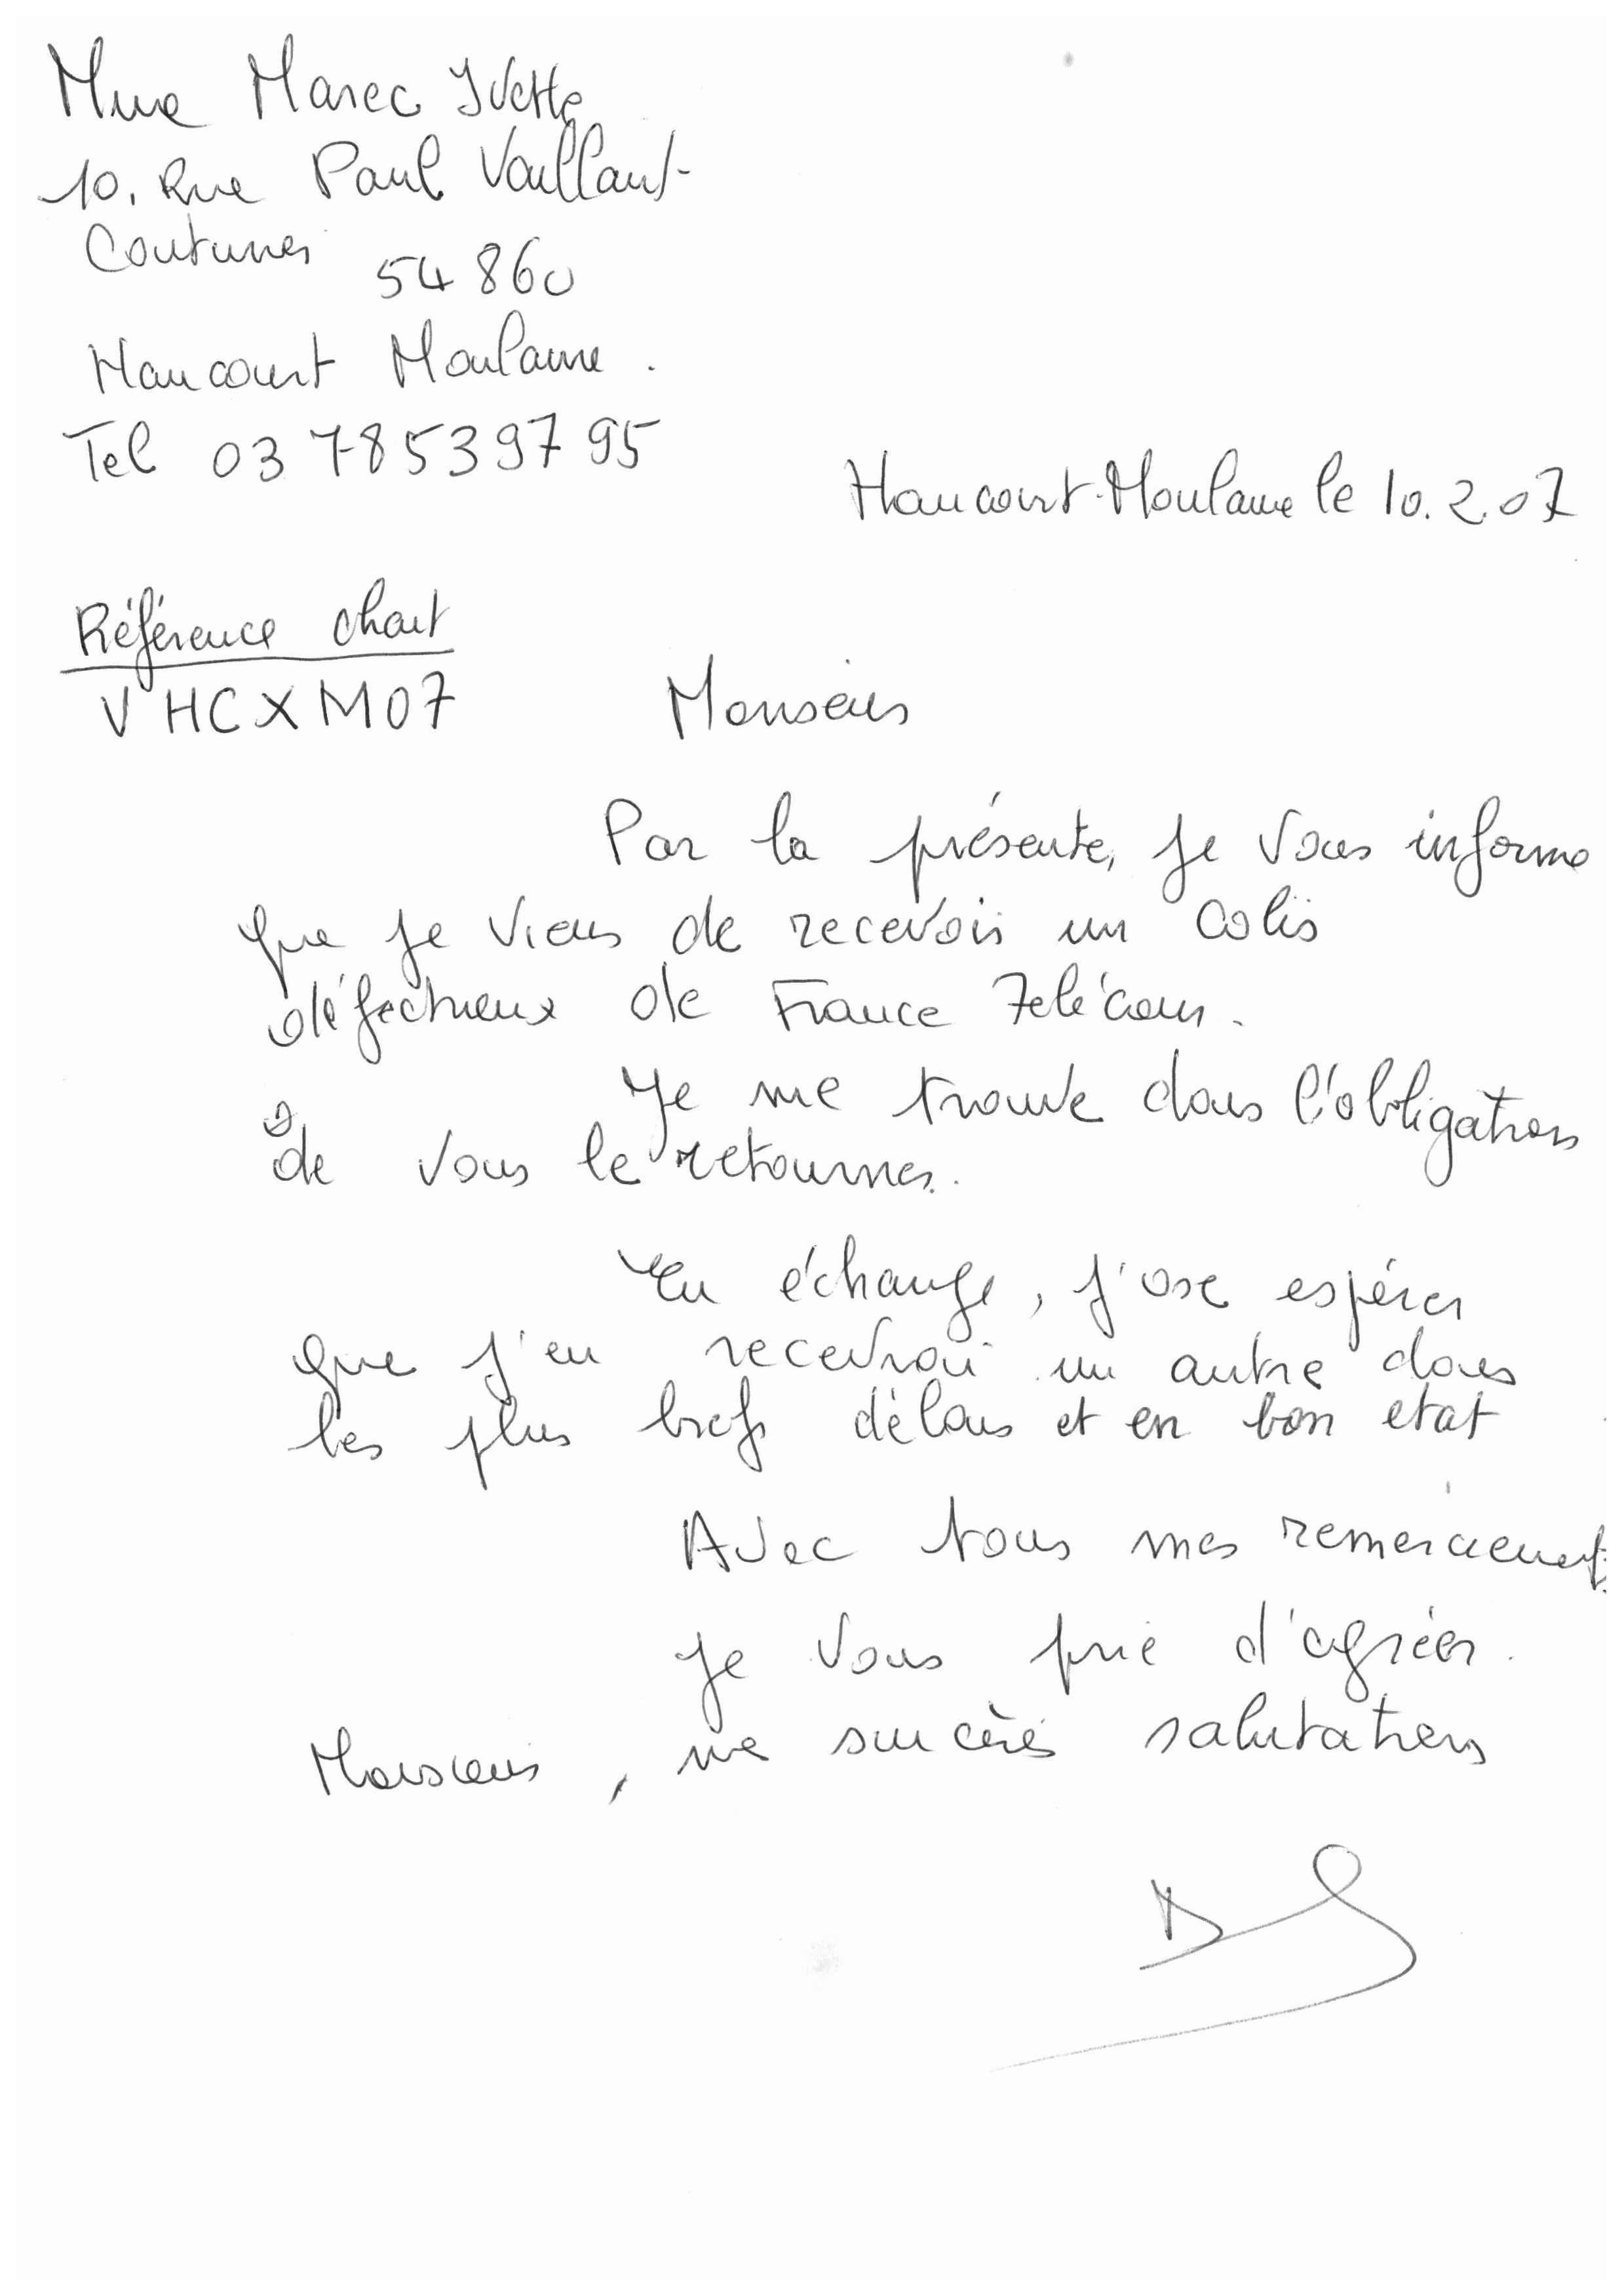 Mme Marec Yvette
10, Rue Paul Vaillant-
Couturier
54 860
Haucourt Moulaine.
Tel 03 78539795
Haucourt-Moulaine le 10.2.07
Référence client
VHCXM07
Monsieur
Par la présente, je vous informe
que je viens de recevoir un colis
défectueux de France Télécom.
Je me trouve dans l'obligation
de vous le retourner.
En échange, j'ose espérer
que j'en recevrai un autre dans
les plus brefs délais et en bon etat
Avec tous mes remerciements.
Je vous prie d'agréer.
Monsieur, me sincères salutations